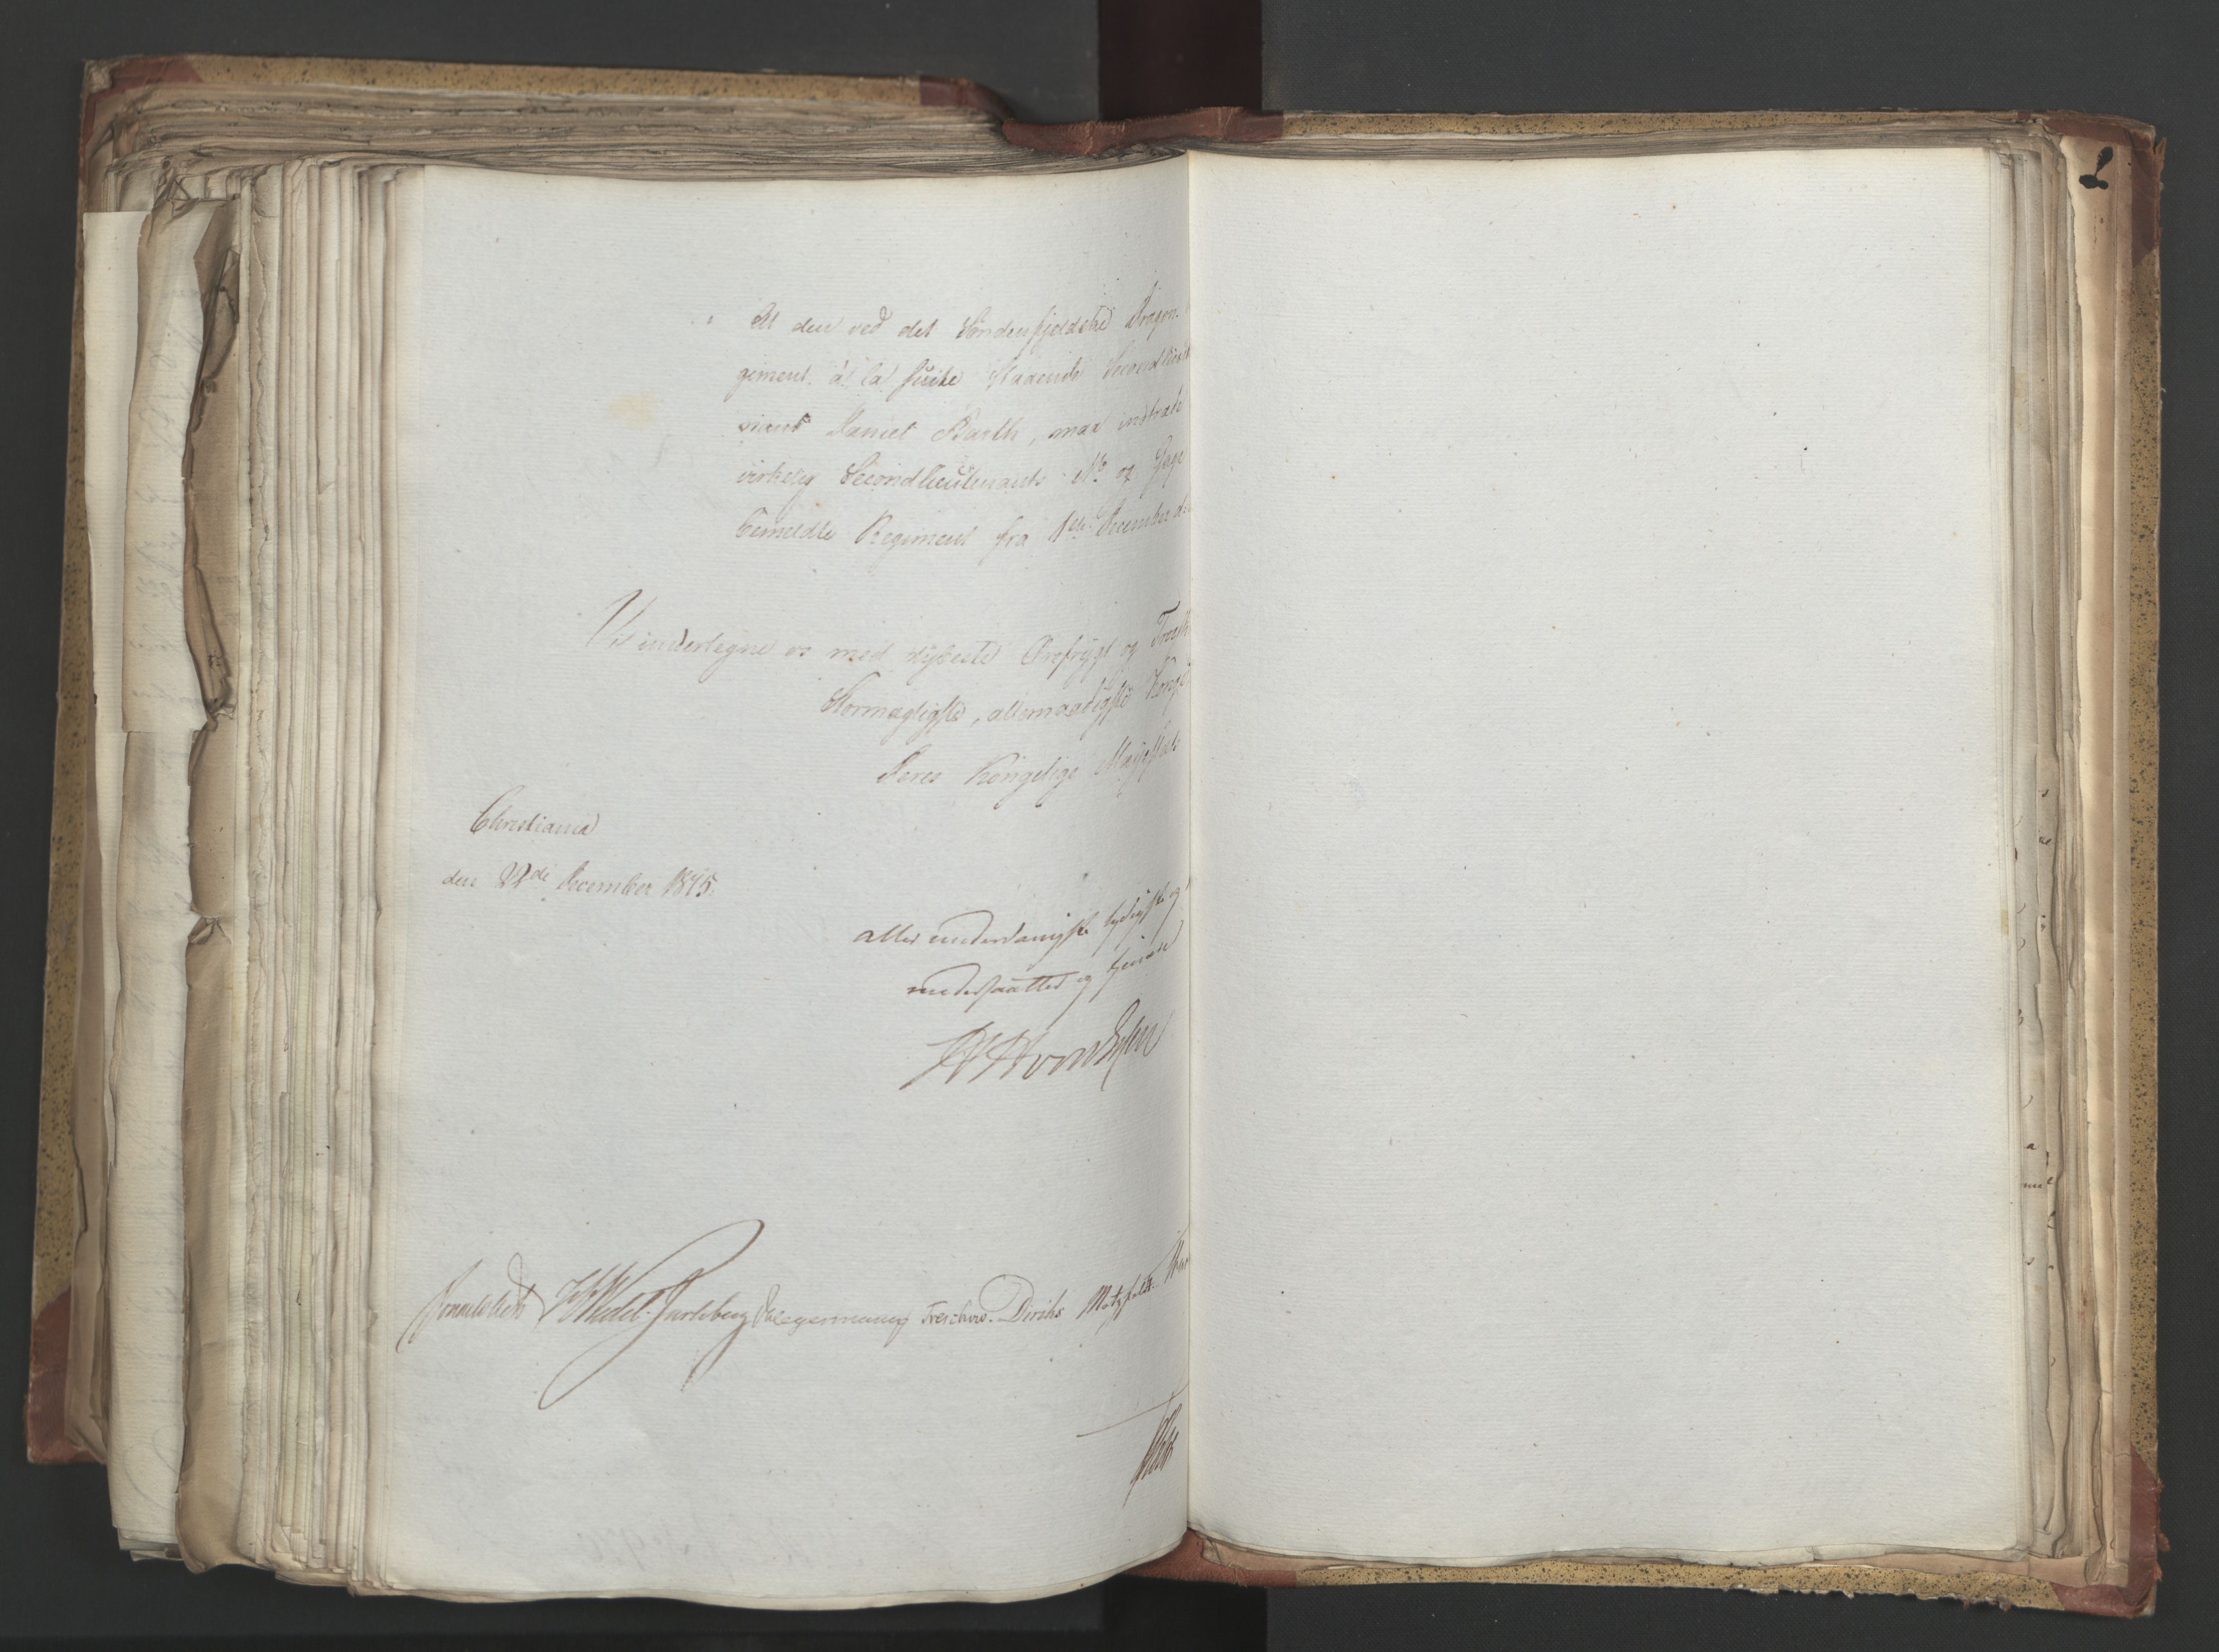 At den ved det Söndenfjeldske Dragon-
giment à la suite staaende Secondlieut
Daniel Barth, maa indtræde
virkelig Secondlieutenants No og Gage
bemeldte Regiment fra 1ste December
Vi undertegne os med dybeste Ærefrygt og
Stormægtigste, allernaadigste Konge
Deres Kongelige Majestæts
Christiania
den 22de December 1815.
allerunderdanigste lydigste og
undersaatter og tienere
Sommerhielm HWedel-Jarlsberg PVelgermann Treschow. Diriks Motzfeldt.